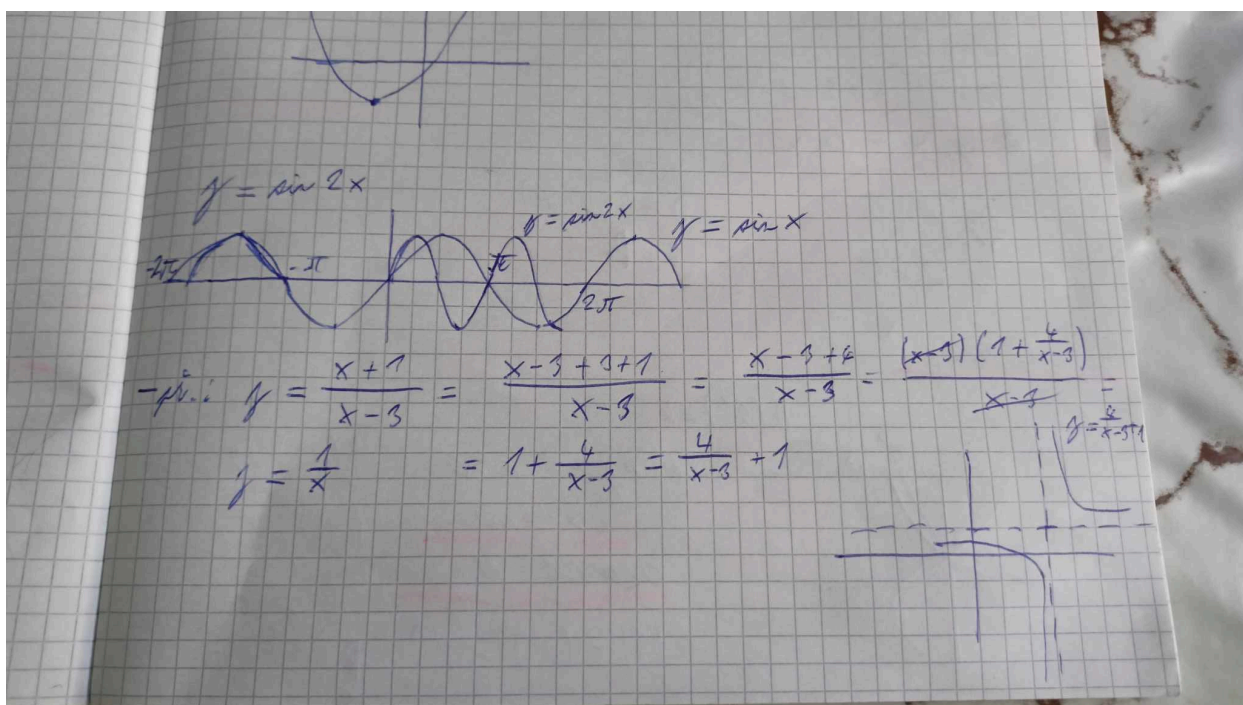 y = sin 2x
y = sin2x
y = sin x
-2π
-π
π
2π
-př.: y = \frac{x+1}{x-3} = \frac{x-3+3+1}{x-3} = \frac{x-3+4}{x-3} = \frac{(x-3)(1+\frac{4}{x-3})}{x-3} =
y = \frac{4}{x-3}+1
y = \frac{1}{x}
= 1 + \frac{4}{x-3} = \frac{4}{x-3} + 1